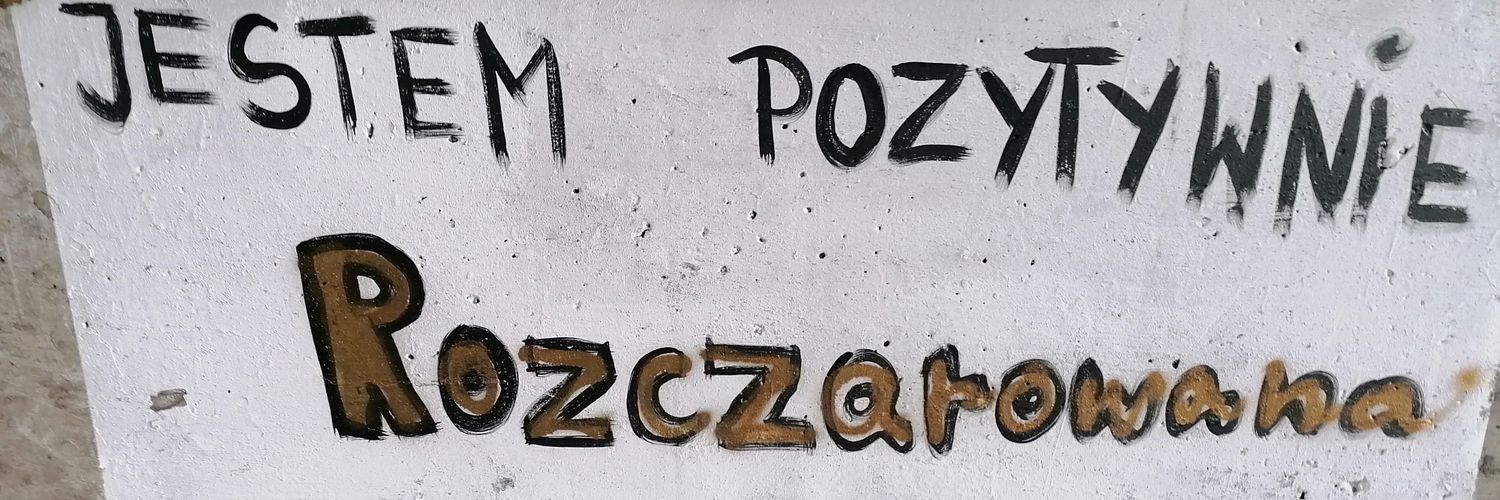 JESTEM POZYTYWNIE
Rozczarowana